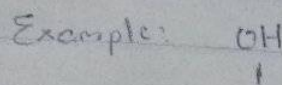 Example: OH